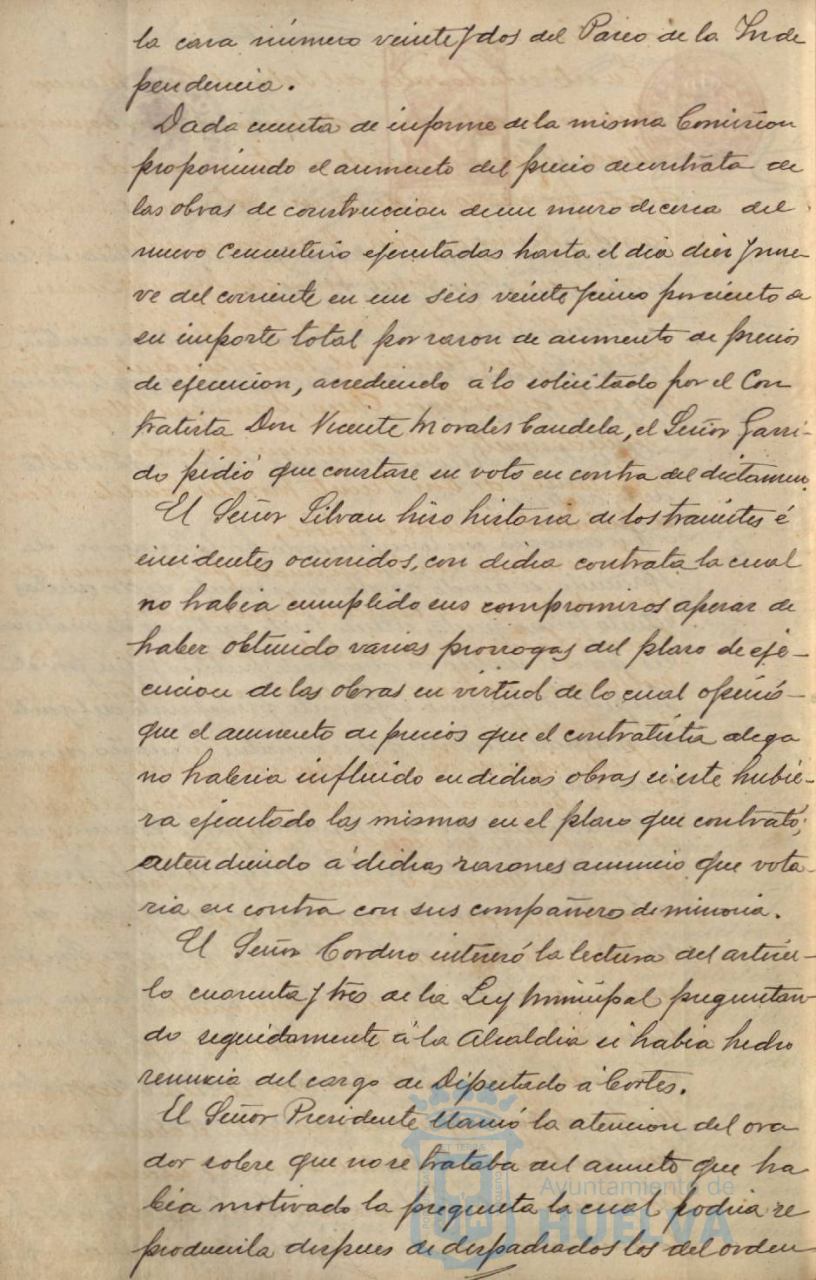 la casa número veinte y dos del Paseo de la Inde
pendencia.
Dada cuenta de informe de la misma Comision
proponiendo el aumento del precio de contrata de
las obras de construccion de un muro de cerca del
nuevo Cementerio ejecutadas hasta el dia diez y nue-
ve del corriente en un seis veinte y cinco por ciento de
su importe total por razon de aumento de precios
de ejecucion, accediendo á lo solicitado por el Con
tratista Don Vicente Morales Candela, el Señor Garri-
do pidió que constase su voto en contra del dictamen.
El Señor Silvan hizo historia de los tramites é
incidentes ocurridos, con dicha contrata la cual
no habia cumplido sus compromisos apesar de
haber obtenido varias prorrogas del plazo de eje-
cucion de las obras en virtud de lo cual opinó-
que el aumento de precios que el contratista alega
no haberia influido en dichas obras si este hubie-
ra ejecutado las mismas en el plazo que contrató;
atendiendo á dichas razones anuncio que vota-
ria en contra con sus compañero de minoria.
El Señor Cordero interesó la lectura del articu-
lo cuarenta y tres de la Ley Municipal preguntan-
do seguidamente á la Alcaldia si habia hecho
renuncia del cargo de Diputado á Cortes.
El Señor Presidente llamó la atencion del ora
dor sobre que no se trataba del asunto que ha
bia motivado la pregunta la cual podria re
producirla despues de despachados los del orden
Ayuntamiento de
HUELVA